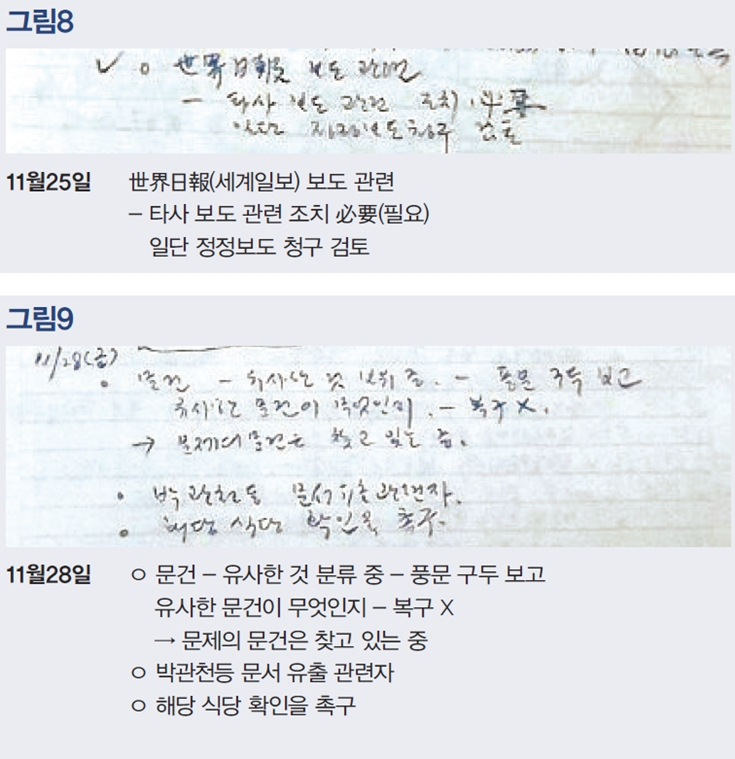 그림8
✓ ○ 世界日報 보도 관련
- 타사 보도 관련 조치 必要
일단 정정보도청구 검토
11월25일 世界日報(세계일보) 보도 관련
– 타사 보도 관련 조치 必要(필요)
일단 정정보도 청구 검토
그림9
11/28(금)
• 문건 - 유사한 것 분류 중. - 풍문 구두 보고
유사한 문건이 무엇인지. - 복구 X.
→ 문제의 문건은 찾고 있는 중.
• 박관천등 문서유출 관련자.
• 해당 식당 확인을 촉구.
11월28일 ㅇ 문건 – 유사한 것 분류 중 – 풍문 구두 보고
유사한 문건이 무엇인지 – 복구 X
→ 문제의 문건은 찾고 있는 중
ㅇ 박관천등 문서 유출 관련자
ㅇ 해당 식당 확인을 촉구